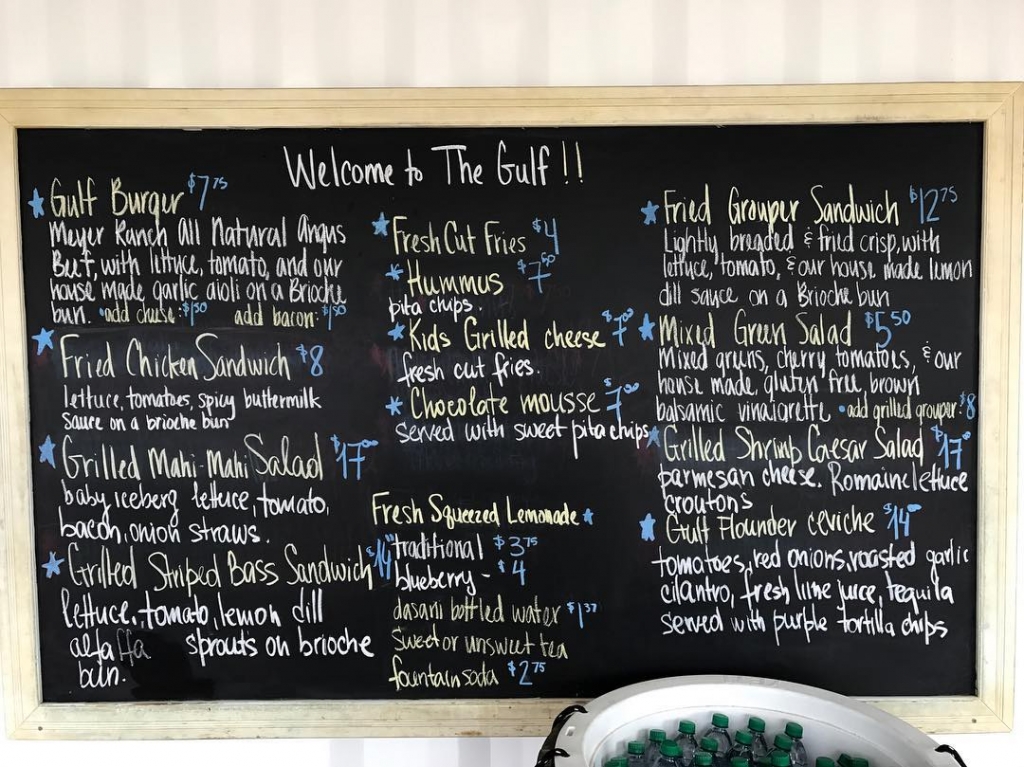 Welcome to The Gulf !!
Gulf Burger $7.75
Meyer Ranch All Natural Angus
Beef, with lettuce, tomato, and our
house made garlic aioli on a Brioche
bun. • add cheese: $1.50 add bacon: $1.50
Fried Chicken Sandwich $8
lettuce, tomatoes, spicy buttermilk
sauce on a brioche bun
Grilled Mahi-Mahi Salad $17.00
baby iceberg lettuce, tomato,
bacon, onion straws.
Grilled Striped Bass Sandwich $14
lettuce, tomato, lemon dill
alfalfa sprouts on brioche
bun.
Fresh Cut Fries $4
Hummus $7.50
pita chips.
Kids Grilled cheese $7.00
fresh cut fries.
Chocolate mousse $7.00
served with sweet pita chips
Fresh Squeezed Lemonade
traditional $3.75
blueberry - $4
dasani bottled water $1.37
sweet or unsweet tea
fountain soda $2.75
Fried Grouper Sandwich $12.75
Lightly breaded & fried crisp, with
lettuce, tomato, & our house made lemon
dill sauce on a Brioche bun
Mixed Green Salad $5.50
Mixed greens, cherry tomatoes, & our
house made, gluten free, brown
balsamic vinaigrette • add grilled grouper: $8
Grilled Shrimp Caesar Salad $17.00
parmesan cheese. Romaine lettuce
croutons
Gulf Flounder ceviche $14.00
tomatoes, red onions, roasted garlic
cilantro, fresh lime juice, tequila
served with purple tortilla chips